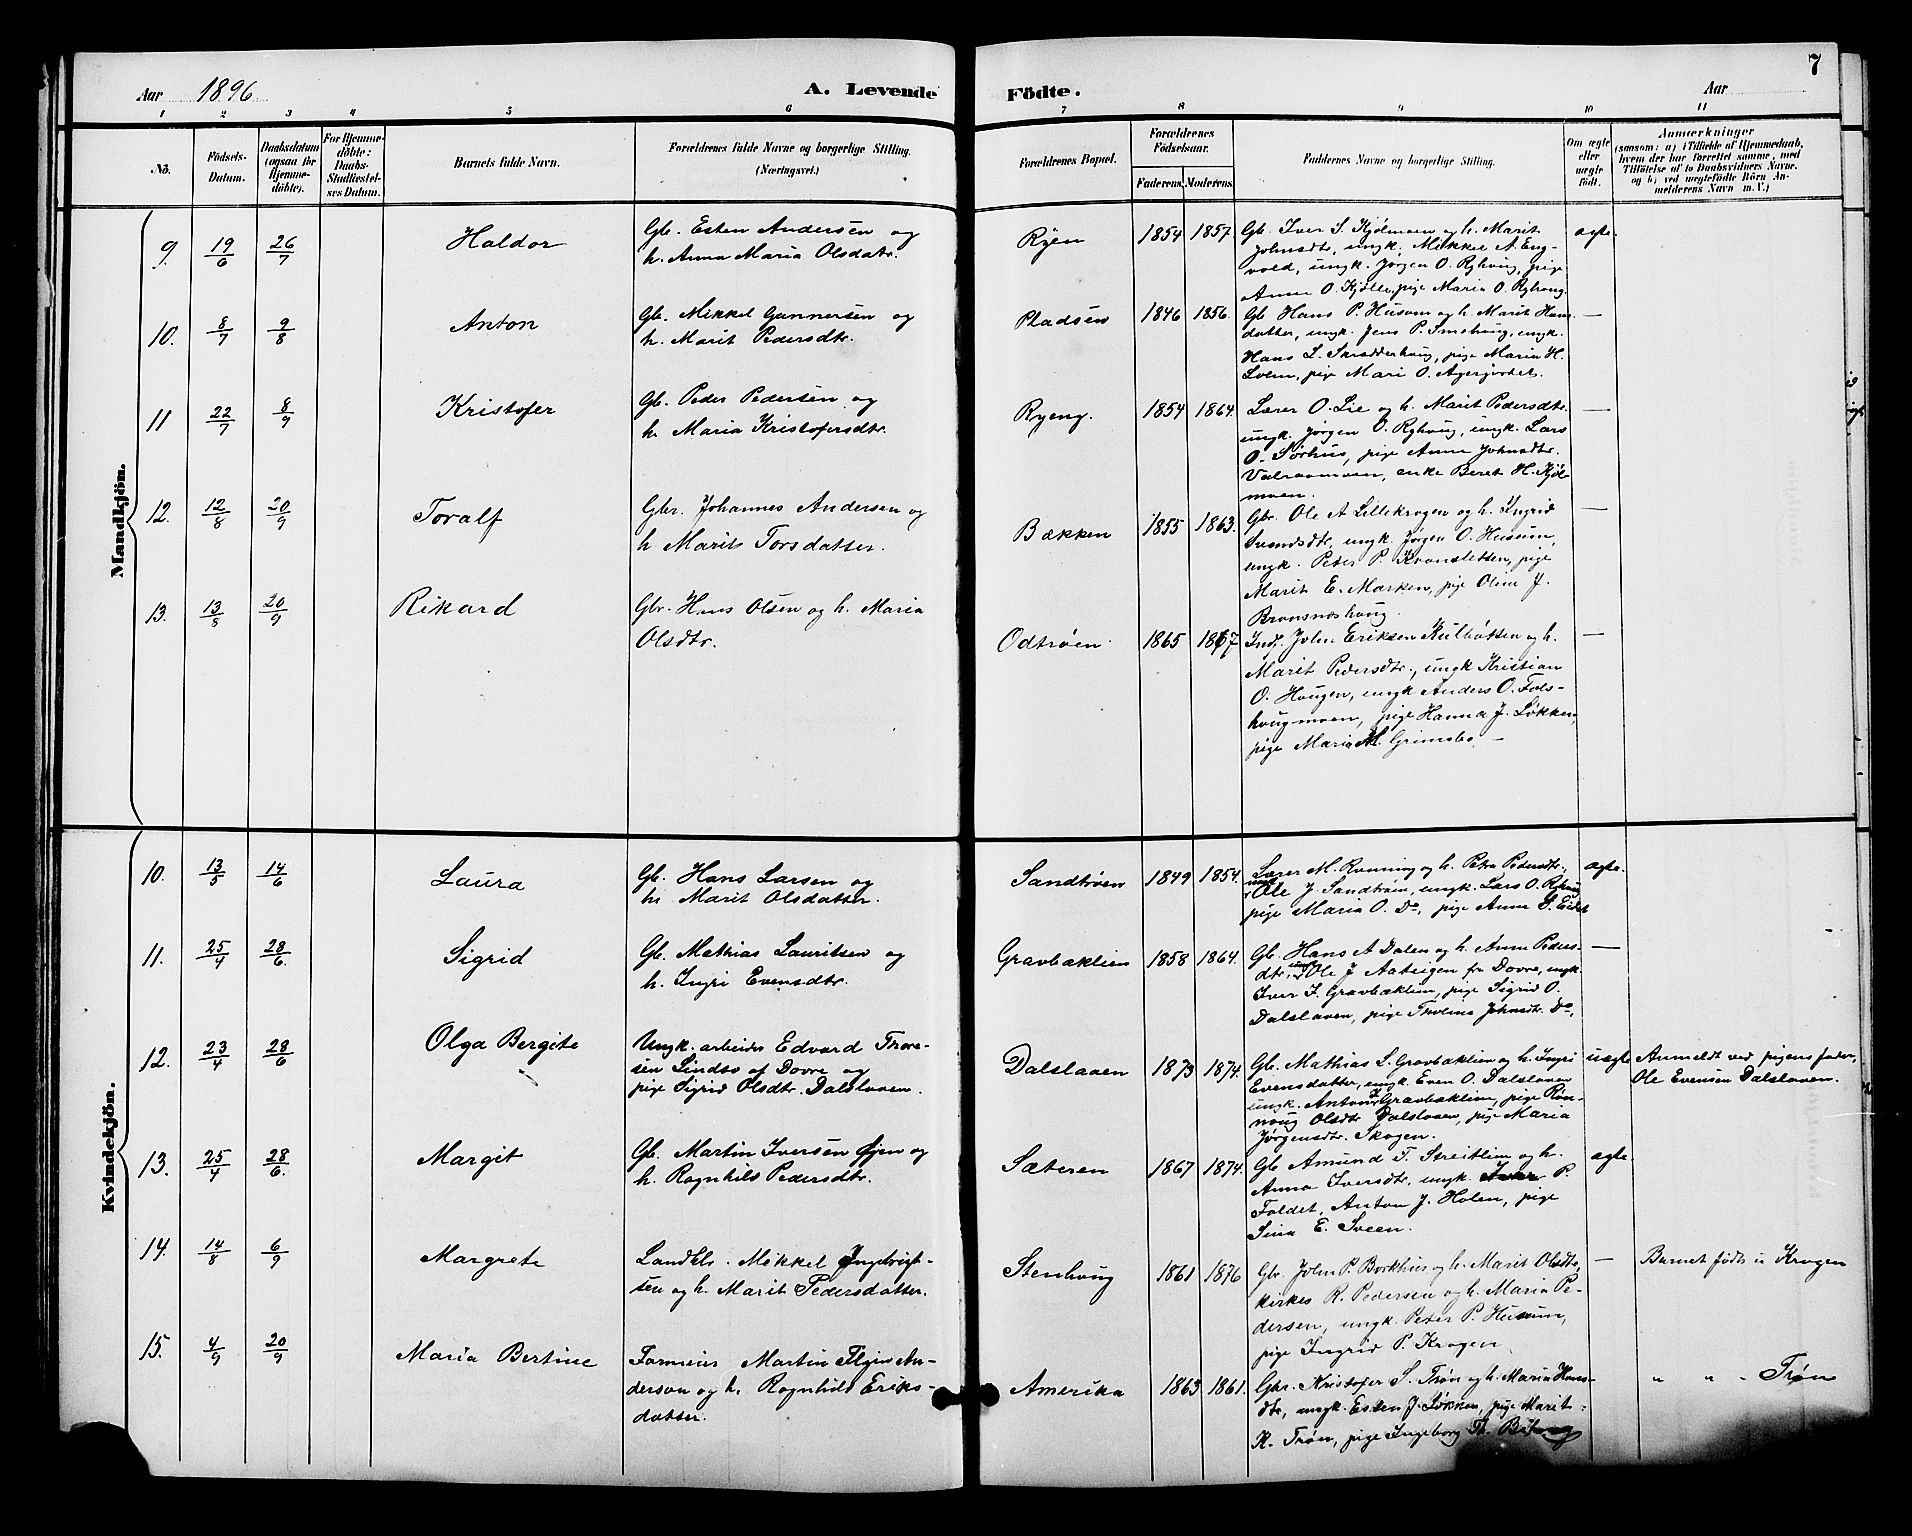 7
Aar 1896 A. Levende Födte. Aar
1 2 3 4 5 6 7 8 9 10 11
No.
Födsels-
Datum.
Daabsdatum
(ogsaa for
Hjemme-
döbte).
For Hjemme-
döbte:
Daabs-
Stadfæstel-
ses Datum.
Barnets fulde Navn.
Forældrenes fulde Navne og borgerlige Stilling.
(Næringsvei.)
Forældrenes Bopæl.
Forældrenes
Fødselsaar.
Faderens. Moderens.
Faddernes Navne og borgerlige Stilling.
Om ægte
eller
uægte
født.
Anmærkninger
(saasom: a) Tilfælde af Hjemmedaab,
hvem der har forrettet samme, med
Tilföielse af to Daabsvidners Navne,
og b) ved uægtefödte Börn An-
melderens Navn m. V.)
Mandkjön.
9. 19/6 26/7 Haldor
Gb. Esten Andersen og
h. Anna Maria Olsdatr.
Ryen 1854 1857.
Gb. Iver S. Kjølmoen og h. Marit
Johnsdtr, ungk. Mikkel A. Eng-
vold, ungk. Jørgen O. Ryhaug, pige
Anne O. Kjølle, pige Maria O. Ryhaug.
ægte.
10. 8/7 9/8 Anton
Gb. Mikkel Gunnersen og
h. Marit Pedersdtr.
Pladsen 1846 1856.
Gb Hans P. Husum og h. Marit Hans-
datter, ungk. Jens P. Smehaug, ungk.
Hans L. Skradderhaug, pige Maria H.
Lohn, pige Mari O. Agerjordet.
—
11 22/7 8/9 Kristofer
Gb. Peder Pedersen og
h. Maria Kristofersdtr.
Ryeng. 1854 1864.
Lærer O. Lie og h. Marit Pedersdtr.
ungk. Jørgen O. Ryhaug, ungk. Lars
O. Sørhus, pige Anne Johnsdtr.
Valraamoen, enke Beret H. Kjøl-
moen.
—
12. 12/8 20/9 Toralf
Gbr. Johannes Andersen og
h Marit Torsdatter.
Bækken 1855 1863.
Gbr. Ole A Lillekrogen og h. Ingrid
Svendsdtr, ungk. Jørgen O. Husum,
ungk. Peter P. Kronsletten, pige
Marit E. Marken, pige Oline J.
Bronsneshaug.
—
13. 13/8 20/9 Rikard
Gbr. Hans Olsen og h. Maria
Olsdtr.
Odtrøen. 1865 1867
Inds. John Eriksen Kulbotten og h.
Marit Pedersdtr., ungk Kristian
O. Haugen, ungk Anders O. Fols-
haugmoen, pige Hanna J. Løkken,
pige Maria M. Grimsbo. —
—
Kvindekjön.
10. 13/5 14/6 Laura
Gb. Hans Larsen og
h. Marit Olsdatter.
Sandtrøen 1849 1854.
Lærer M. Ronning og h. Petra Pedersdtr.,
ungk Ole J. Sandtrøen, ungk. Lars O. Ryhaug
pige Maria O. Do, pige Anne
ægte.
11. 25/4 28/6. Sigrid
Gb. Mathias Lauritsen og
h. Ingri Evensdtr.
Gravbæklien 1858 1864.
Gb. Hans A Dalen og h. Anne Peders-
dtr, ungk Ole J Aateigen fra Dovre, ungk.
Iver I. Gravbæklien, pige Sigrid O.
Dalslaaen, pige Tholine Johnsdtr. Do,
—
12. 23/4 28/6 Olga Bergite
Ungk. arbeider Edvard Thore-
sen Lindsø af Dovre og
pige Sigrid Olsdtr. Dalslaaen.
Dalslaaen 1873 1874.
Gb. Mathias L. Gravbæklien og h. Ingri
Evensdatter, ungk. Even O. Dalslaaen
ungk. Anton I. Gravbæklien, pige Røn-
naug Olsdtr Dalslaaen, pige Maria
Jørgensdtr. Skogen.
uægte
Anmeldt ved pigens fader,
Ole Evensen Dalslaaen.
13. 25/4 28/6. Margit
Gb. Martin Iversen Øjen og
h. Ragnhild Pedersdtr.
Sæteren 1867 1874.
Gb Amund T. Streitlien og h.
Anna Iversdtr, ungk. Iver P.
Foldet, Anton J. Holen, pige
Sina E. Sveen.
ægte.
14. 14/8 6/9 Margrete
Landhl. Mikkel Ingebrigt-
sen og h. Marit Pedersdatter.
Stenhaug 1861 1876
Gbr. John P. Borkhus og h. Marit Olsdtr,
kirkes. R. Pedersen og h. Maria Pe-
dersen, ungk. Peter P. Husum,
pige Ingrid P. Krogen.
—
Barnet født i Krogen
15. 4/9 20/9 Maria Bertine
Farmeier Martin Elgin An-
derson og h. Ragnhild Eriks-
datter.
Amerika 1863 1861.
Gbr. Kristofer S. Trøn og h. Maria Hans-
dtr, ungk. Esten J. Løkken, pige Marit
K. Trøn, pige Ingeborg Th.
" " - Trøn